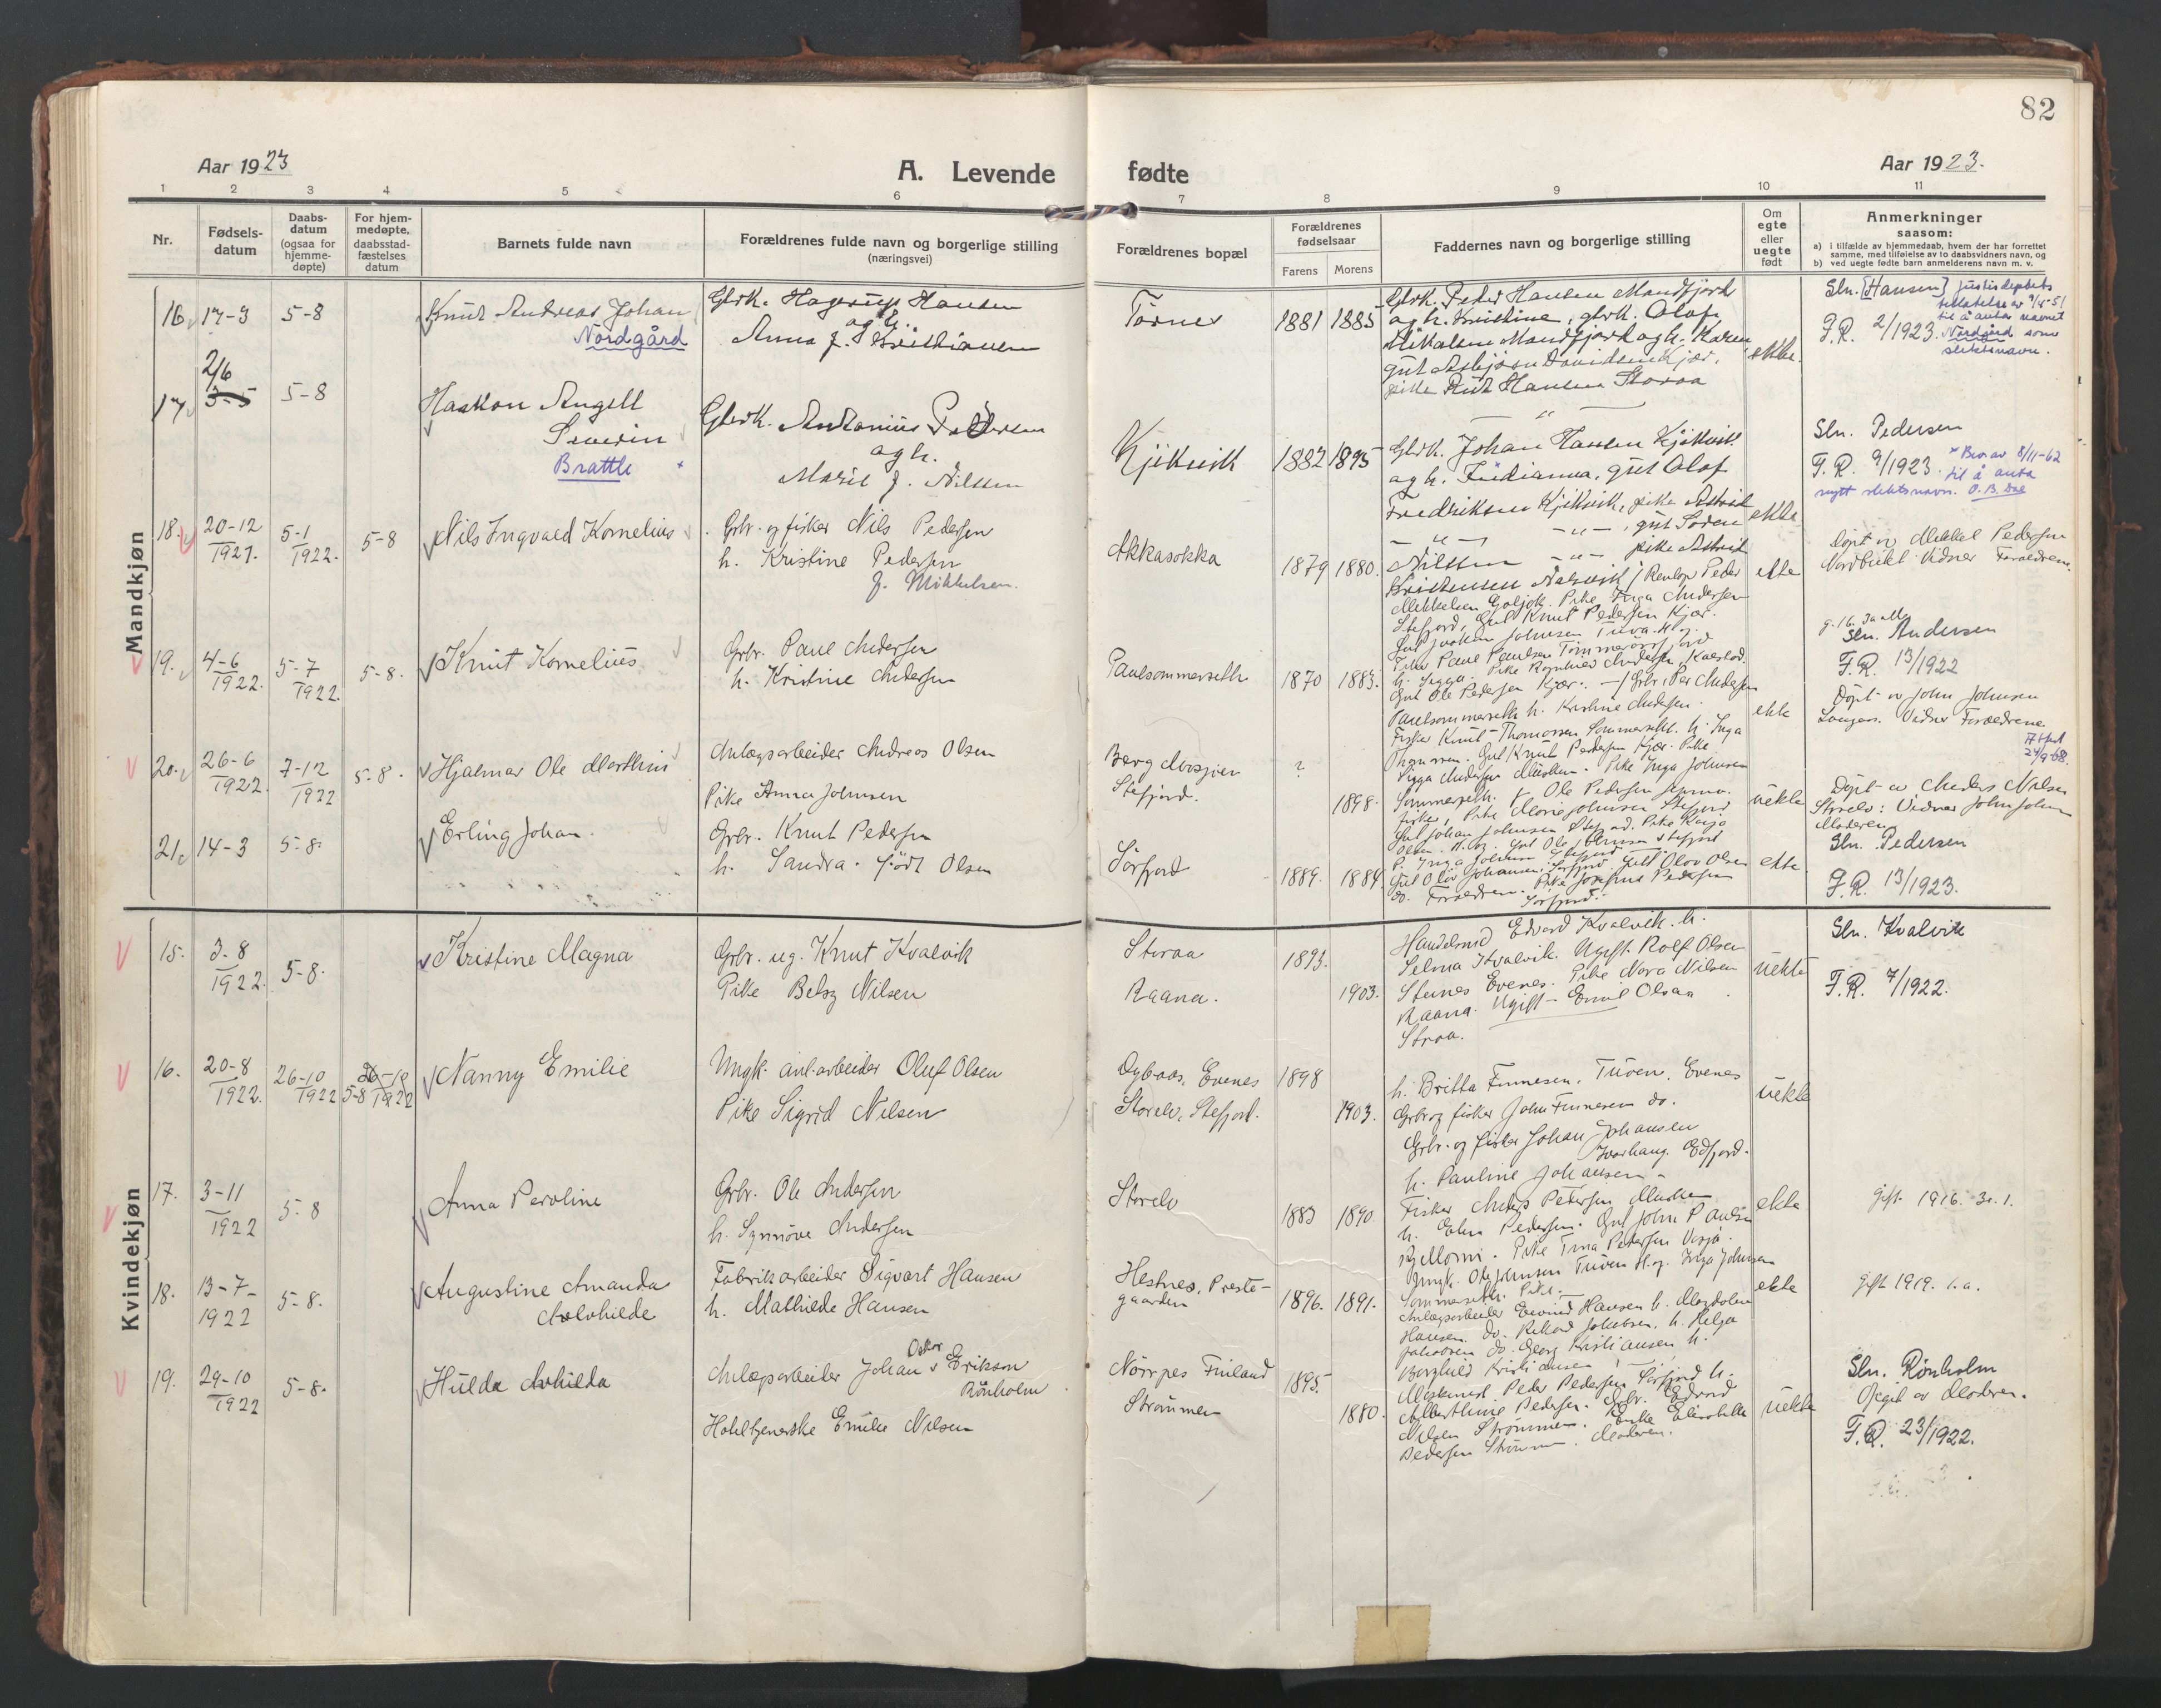 82
Aar 1923
A. Levende fødte
Aar 1923.
1 2 3 4 5 6 7 8 9 10 11
Nr.
Fødsels-
datum
Daabs-
datum
(ogsaa for
hjemme-
døpte)
For hjem-
medøpte,
daabsstad-
fæstelses
datum
Barnets fulde navn
Forældrenes fulde navn og borgerlige stilling
(næringsvei)
Forældrenes bopæl
Forældrenes
fødselsaar
Farens Morens
Faddernes navn og borgerlige stilling
Om
egte
eller
uegte
født
Anmerkninger
saasom:
a) i tilfælde av hjemmedaab, hvem der har forrettet
samme, med tilføielse av to daabsvidners navn, og
b) ved uegte fødte barn anmelderens navn m. v.
Mandkjøn
16. 17-3 5-8
Knut Andreas Johan
Nordgård
Gbrk. Hagerup Hansen
og h.
Anna f. Kristiansen
Tørnes
1881 1885
Gbrk. Peder Hansen Mandfjord
og h. Kristine, gbrk. Olaf
Mikalsen Mandfjord og h. Karen
gut Asbjørn Davidsen Kjær.
pike Rut Hansen Storaa
ekte.
Sln. [Hansen] Justisdeptets
til å anta navnet
F.R. 2/1923. Nordgård som
slektsnavn.
17. 2/6
3-5 5-8
Haakon Angell
Severin
Brattli
Gbrk. Antonius Pedersen
og h.
Marie f. Nilssen
Kjikvik
1882 1895
Gbrk. Johan Hansen Kjikvik
og h. Fredianna, gut Olaf
Fredriksen Kjikvik, pike Astrid
-"- -"-, gut Søren
Nilssen -"- pike Astrid
Kristensen
ekte
Sln. Pedersen
F.R. 9/1923. Bev. av 8/11-62
til å anta
nytt slektsnavn. O.B. Dal
18. 20-12
1921. 5-1
1922. 5-8
Nils Ingvald Kornelius
Gbr. og fisker Nils Pedersen
h. Kristine Pedersen
f. Mikkelsen.
Akkasokka
1879 1880.
Peder
Mikkelsen Goljok. Pike Inga Andersen
Stefjord, Gut Knut Pedersen Kjær.
Gut Joakim Johnsen
ekte
Døpt av Mikkel Pedersen
Vidner Forældrene.
19. 4-6
1922. 5-7
1922. 5-8.
Knut Kornelius
Gbr. Paul Andersen
h. Kristine Andersen
Paulsommerseth
1870 1883.
Pike Ragnhild Andersen
Gut Ole Pedersen Kjær. Gbr. Per Andersen
Paulsommerseth h. Kristine Andersen.
ekte
Sln. Andersen
F.R. 13/1922
Døpt av John Johnsen
Vidner Forældrene
20. 26-6
1922. 7-12
1922 5-8.
Hjalmar Ole Marthin
Anlægsarbeider Andreas Olsen
Pike Anna Johnsen
Stefjord.
?
1898.
Fisker Knut Thomassen Sommerseth. h. Inga
Thomassen. Gut Knut Pedersen Kjær. Pike
Andersen Musken. Pike Inga Johnsen
Sommerseth. Ole Pedersen
fisker, Pike Marie Johnsen Stefjord
Gut Johan Johnsen Stefjord. Pike
uekte
Attest
24/9-68.
Døpt av Anders Nilsen
Storelv: Vidner John Johnsen
Moderen
21. 14-3 5-8.
Erling Johan.
Gbr. Knut Pedersen
h. Sandra. født Olsen
Sørfjord
1889. 1884
Gut Olav Johansen Sørfjord. Gut Olov Olsen
do. Forældrene. Pike Josefine Pedersen
Sørfjord.
ekte.
Sln. Pedersen
F.R. 13/1923.
Kvindekjøn
15. 3-8
1922. 5-8.
Kristine Magna
Gbr. ug. Knut Kvalvik
Pike Betsy Nilsen
Storaa
Raana.
1893.
1903.
Handelsmd Edvard Kvalvik. h.
Selma Kvalvik. Ugift. Rolf Olsen
Stunes Evenes. Pike Nora Nilsen
Raana. Ugift - Emil Olsen
Storaa.
uekte
Sln. Kvalvik
F.R. 7/1922.
16. 20-8
1922. 26-10
1922 26-10
5-8 1922
Nanny Emilie
Ungk. anl.arbeider Oluf Olsen
Pike Sigrid Nilsen
Dybaas, Evenes
Storelv, Stefjord.
1898
1903.
h. Britta Finnesen, Tuven, Evenes
Gbr og fisker John Finnesen do.
Gbr. og fisker Johan Johansen
Kvarhaug. Edfjord.
h. Pauline Johansen -
uekte
17. 3-11
1922 5-8
Anna Peroline
Gbr. Ole Andersen
h. Synnøve Andersen
Storelv
1883 1890.
Fisker Anders Pedersen Musken
h. Elen Pedersen. Gut John Paulsen
Pike Tina Pedersen
Ungk. Ole Johnsen Tuven Inga Johnsen
Sommerseth. Pike.
ekte
Gift 1916. 30. 1.
18. 13-7-
1922 5-8.
Augustine Amanda
Alvhilde
Fabrikarbeider Sigvart Hansen
h. Mathilde Hansen
Hestnes, Preste-
gaarden
1896. 1891.
Anlægsarbeider Eivind Hansen h. Magdalen
Hansen do. Rikard Jakobsen, h. Helga
Jakobsen do. Georg Kristiansen h.
Borghild Kristiansen
ekte
Gift 1919.
19. 29-10
1922 5-8.
Hulda Alvhilda
Anlægsarbeider Johan Oskar Erikson
Rönholm
Hoteltjenerske Emilie Nilsen
Nörrpes Finland
Strømmen
1895.
1880.
Peder Pedersen Sørfjord h.
Alberthine Pedersen. Gbr. Edvard
Nilsen Strømmen. Enke Elisabeth
Pedersen Strømmen. Moderen.
uekte
Sln. Rönholm
Opgit av Moderen.
F.R. 23/1922.